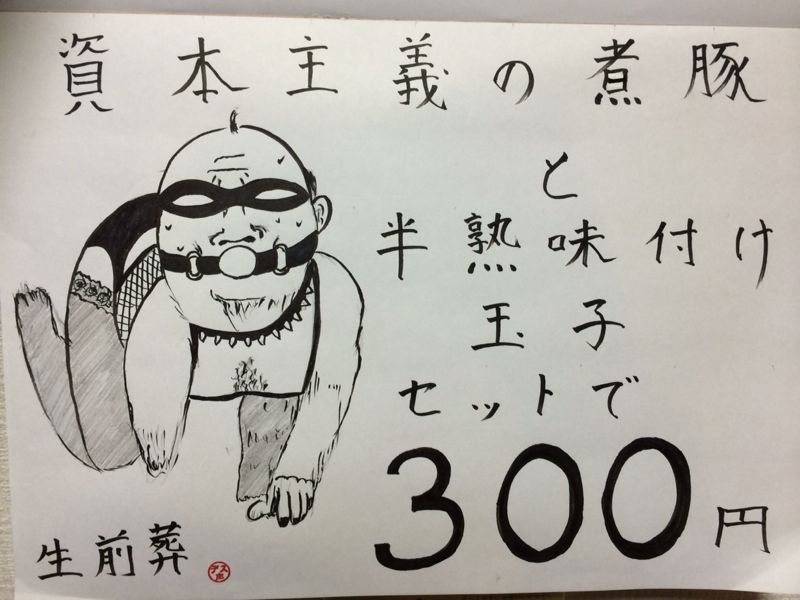 資本主義の煮豚
と
半熟味付け
玉子
セットで
300円
生前葬